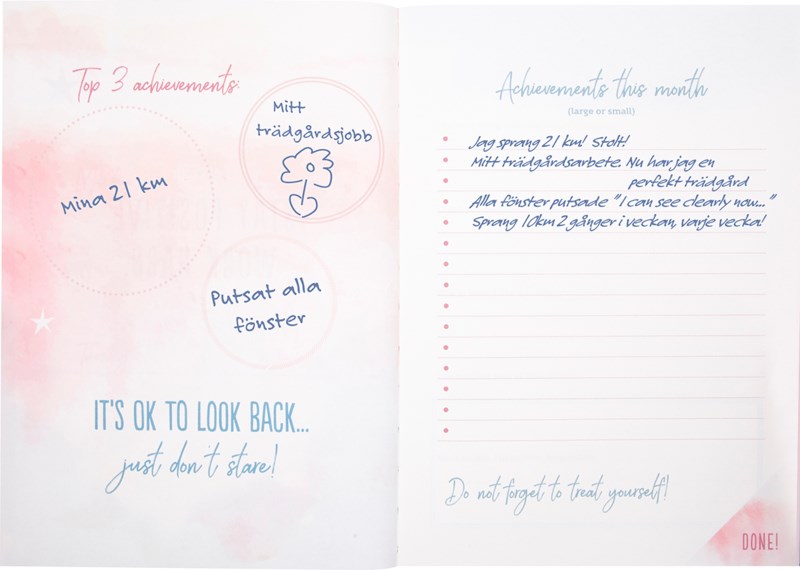 Top 3 achievements:
Mitt
trädgårdsjobb
Mina 21 km
Putsat alla
fönster
IT'S OK TO LOOK BACK...
just don't stare!
Achievements this month
(large or small)
Jag sprang 21 km! Stolt!
Mitt trädgårdsarbete. Nu har jag en
perfekt trädgård
Alla fönster putsade "I can see clearly now..."
Sprang 10km 2 gånger i veckan, varje vecka!
Do not forget to treat yourself!
DONE!